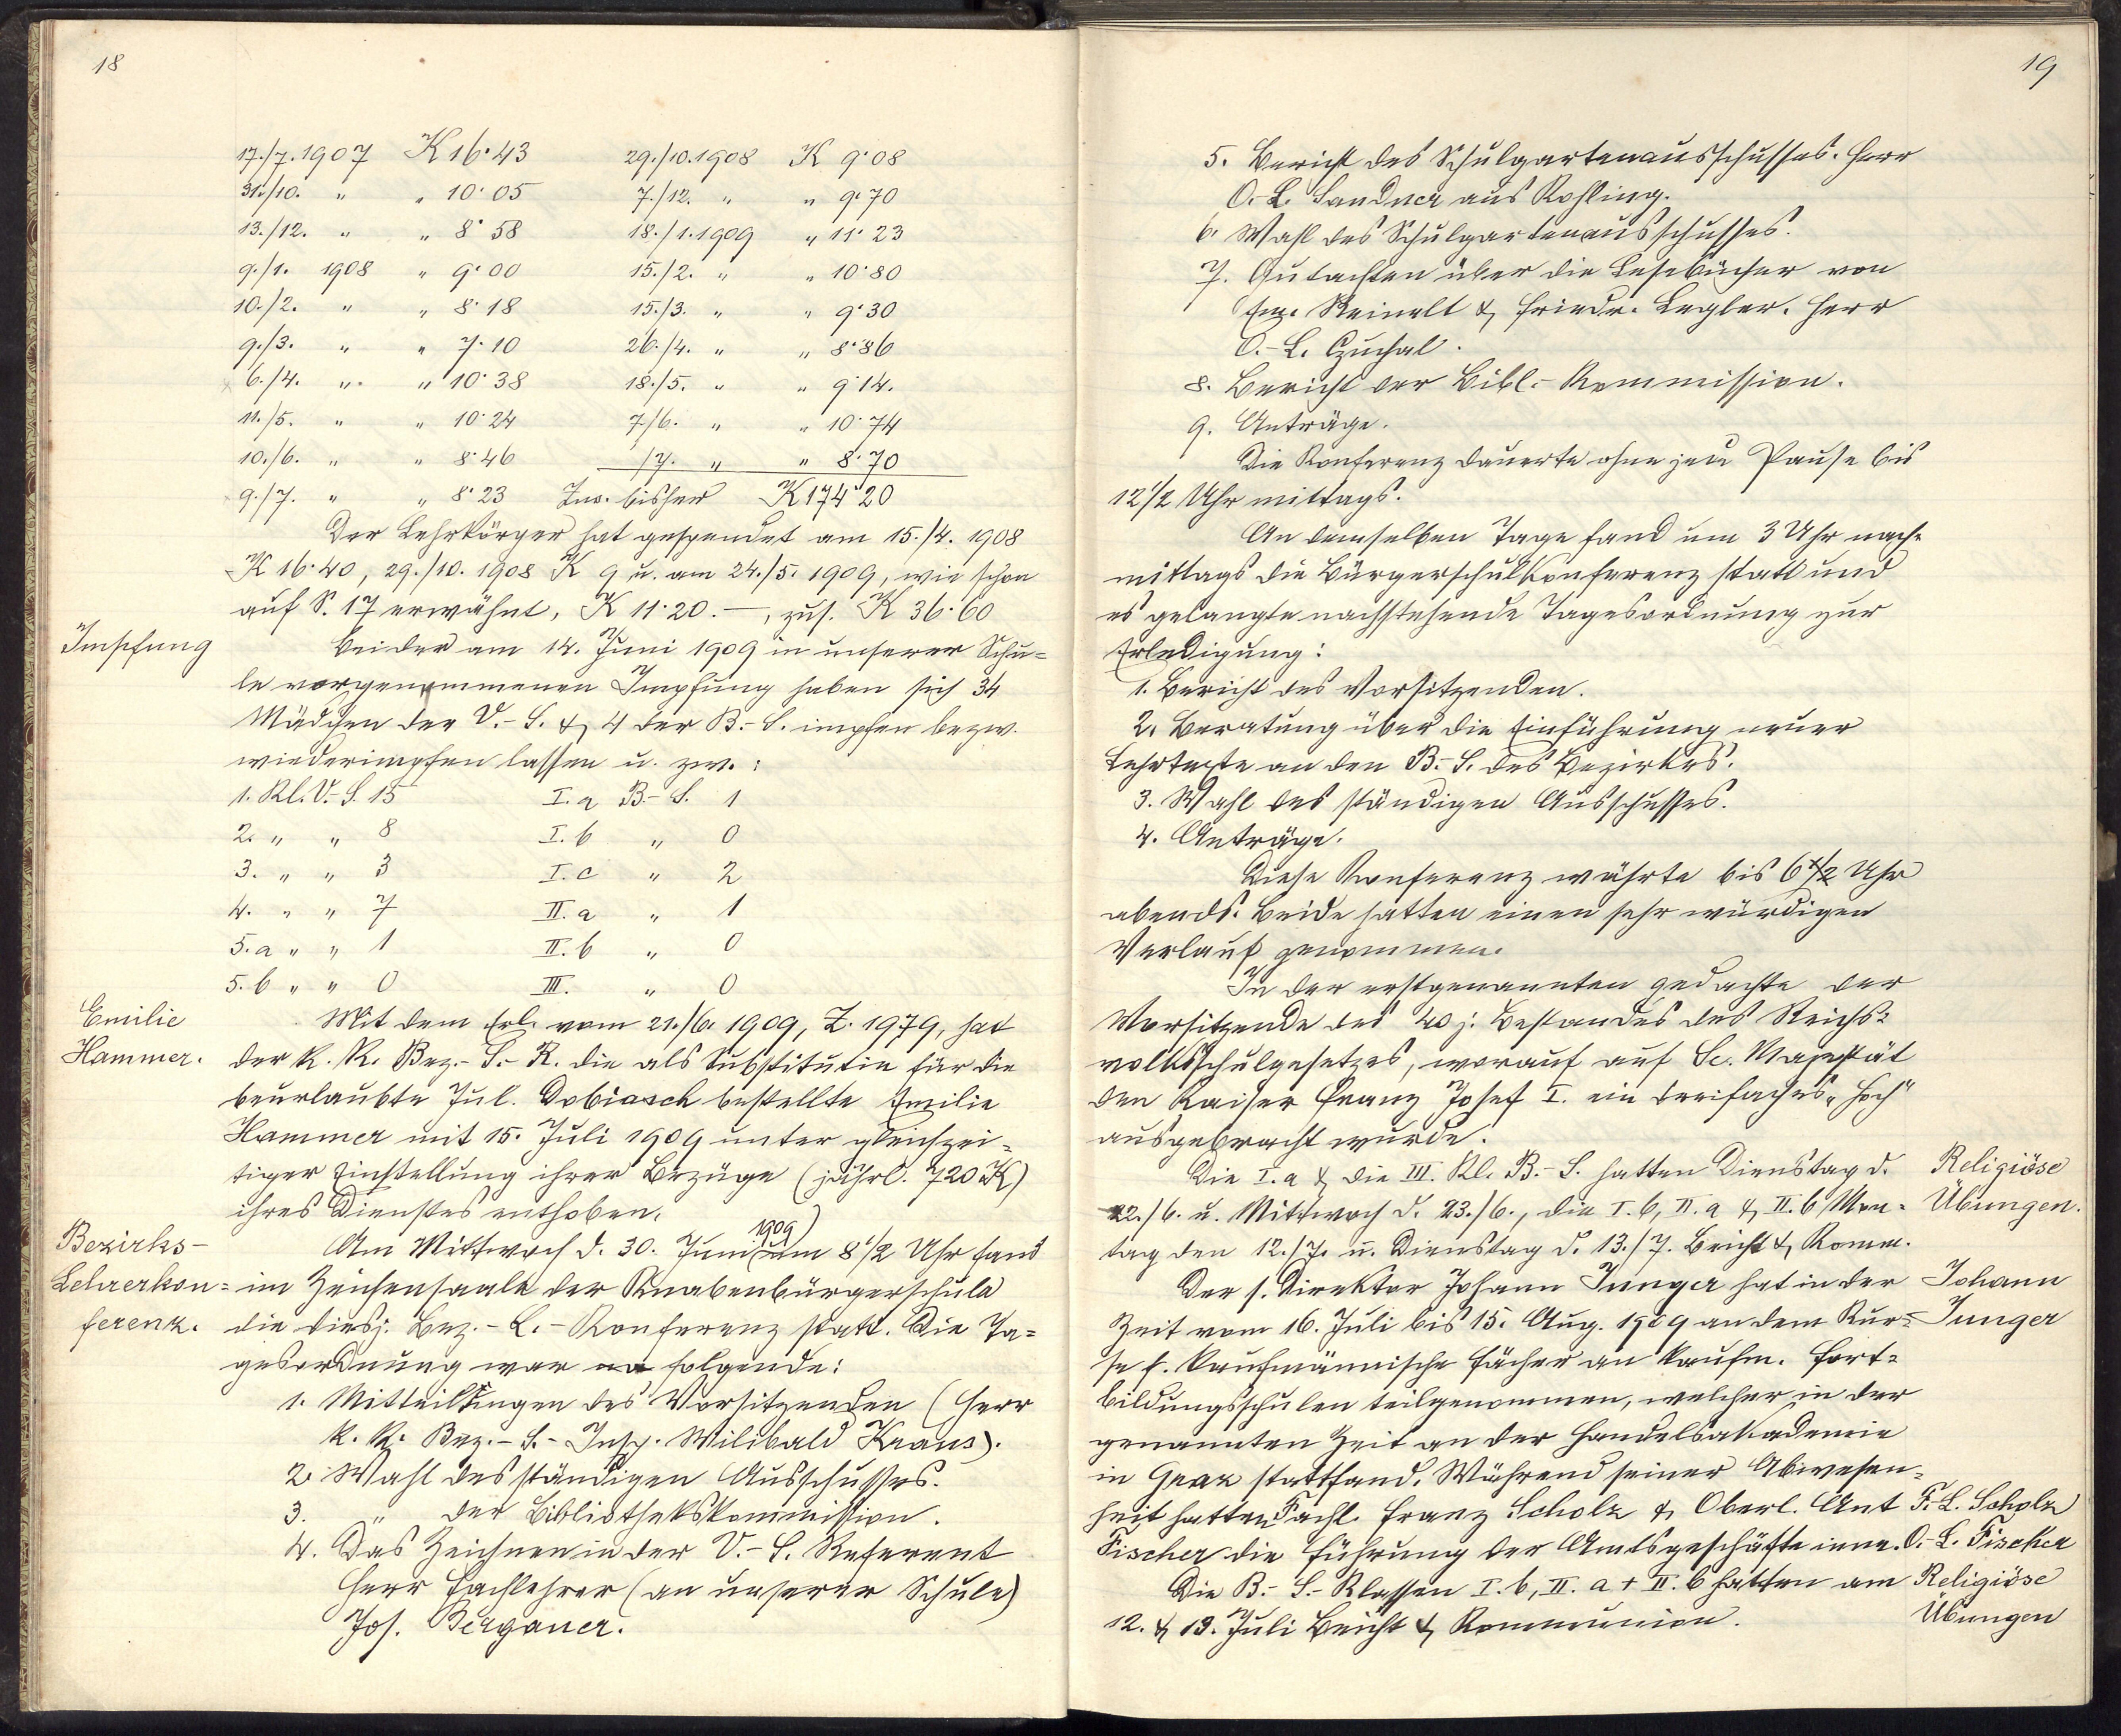 18
17./7. 1907 K 16·43 29./10. 1908 K 9·08
31./10. " " 10·05 7./12. " " 9·70
13./12. " " 8·58 18./1. 1909 " 11·23
9./1. 1908 " 9·00 15./2. " " 10·80
10./2. " " 8·18 15./3. " " 9·30
9./3. " " 7·10 26./4. " " 8·86
6./4. " " 10·38 18./5. " " 9·14.
11./5. " " 10·24 7./6. " " 10·74
10./6. " " 8·46 /7. " " 8·70
9./7. " " 8·23 Zus. bisher K 174·20
Der Lehrkörper hat gespendet am 15./4. 1908
K 16·40, 29./10. 1908 K 9 u. am 24./5. 1909, wie schon
auf S. 17 erwähnt, K 11·20.—, zus. K 36·60
Impfung
Bei der am 14. Juni 1909 in unserer Schu-
le vorgenommenen Impfung haben sich 34
Mädchen der V.-S. & 4 der B.-S. impfen bezw.
wiederimpfen lassen u. zw.:
1. Kl. V.-S. 15 I. a B.-S. 1
2. " " 8 I. b " 0
3. " " 3 I. c " 2
4. " " 7 II. a " 1
5. a " " 1 II. b " 0
5. b " " 0 III. " 0
Emilie
Hammer.
Mit dem Erl. vom 21./6. 1909, Z. 1979, hat
der k. k. Bez.-S.-R. die als Substitutin für die
beurlaubte Jul. Dobiasch bestellte Emilie
Hammer mit 15. Juli 1909 unter gleichzei-
tiger Einstellung ihrer Bezüge (jährl. 720 K)
ihres Dienstes enthoben.
Bezirks-
Lehrerkon-
ferenz.
Am Mittwoch d. 30. Juni 1909 um 8 1/2 Uhr fand
im Zeichensaale der Knabenbürgerschule
die diesj. Bez.-L.-Konferenz statt. Die Ta-
gesordnung war folgende:
1. Mitteilungen des Vorsitzenden (Herr
k. k. Bez.-S.-Insp. Wilibald Kraus).
2. Wahl des ständigen Ausschusses.
3. " der Bibliothekskommission.
4. Das Zeichnen in der V.-S. Referent
Herr Fachlehrer (an unserer Schule)
Jos. Bergauer.
19
5. Bericht des Schulgartenausschusses. Herr
O.-L. Sandner aus Rohling.
6. Wahl des Schulgartenausschusses.
7. Gutachten über die Lesebücher von
Reinelt & Friedr. Legler. Herr
O.-L. Czuchal.
8. Bericht der Bibl.-Kommission.
9. Anträge.
Die Konferenz dauerte ohne jede Pause bis
12 1/2 Uhr mittags.
An demselben Tage fand um 3 Uhr nach-
mittags die Bürgerschulkonferenz statt und
es gelangte nachstehende Tagesordnung zur
Erledigung:
1. Bericht des Vorsitzenden.
2. Beratung über die Einführung neuer
Lehrtexte an den B.-S. des Bezirkes.
3. Wahl des ständigen Ausschusses.
4. Anträge.
Diese Konferenz währte bis 6 1/2 Uhr
abends. Beide hatten einen sehr würdigen
Verlauf genommen.
In der erstgenannten gedachte der
Vorsitzende des 40 j. Bestandes des Reichs-
volksschulgesetzes, worauf auf Se. Majestät
den Kaiser Franz Josef I. ein dreifaches „Hoch"
ausgebracht wurde.
Die I. a & die III. Kl. B.-S. hatten Dienstag d.
22./6. u. Mittwoch d. 23./6., die I. b, II. a & II. b Mon-
tag den 12./7. u. Dienstag d. 13./7. Beicht & Komm.
Religiöse
Übungen.
Der s. Direktor Johann Junger hat in der
Zeit vom 16. Juli bis 15. Aug. 1909 an dem Kur-
se f. kaufmännische Fächer an kaufm. Fort-
bildungsschulen teilgenommen, welcher in der
genannten Zeit an der Handelsakademie
in Graz stattfand. Während seiner Abwesen-
heit hatten Fachl. Franz Scholz & Oberl. Ant
Fischer die Führung der Amtsgeschäfte inne.
Johann
Junger
F. L. Scholz
O.-L. Fischer
Die B.-S.-Klassen I. b, II. a + II. b hatten am
12. & 13. Juli Beicht & Kommunion.
Religiöse
Übungen